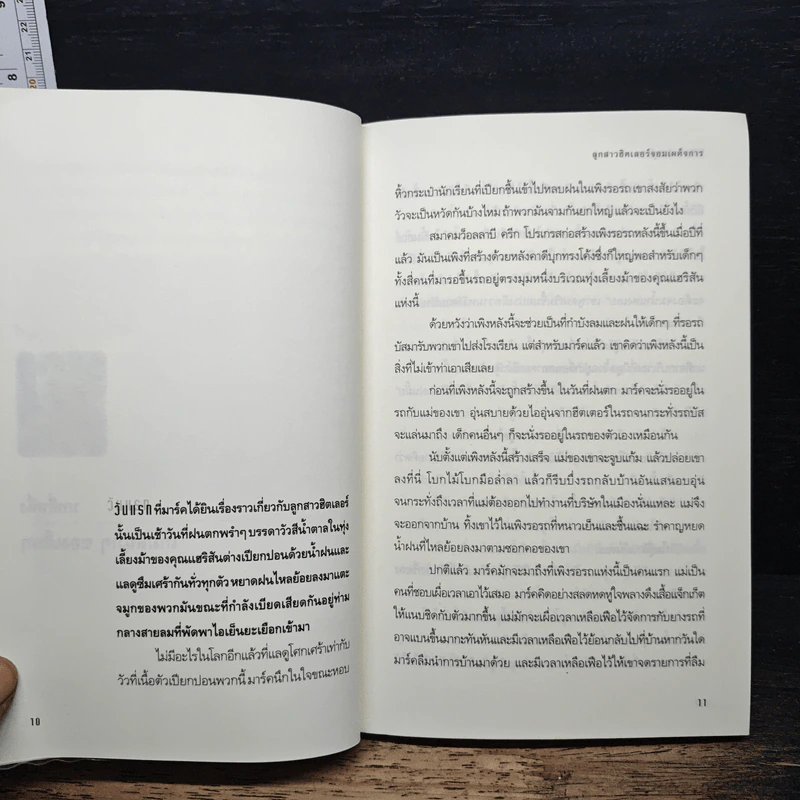 9
22
21
8
20
วันแรกที่มาร์คได้ยินเรื่องราวเกี่ยวกับลูกสาวฮิตเลอร์
นั้นเป็นเช้าวันที่ฝนตกพรำๆ บรรดาวัวสีน้ำตาลในทุ่ง
เลี้ยงม้าของคุณแฮริสันต่างเปียกปอนด้วยน้ำฝนและ
แลดูซึมเศร้ากันทั่วทุกตัว หยาดฝนไหลย้อยลงมาแตะ
จมูกของพวกมันขณะที่กำลังเบียดเสียดกันอยู่ท่าม
กลางสายลมที่พัดพาไอเย็นยะเยือกเข้ามา
ไม่มีอะไรในโลกอีกแล้วที่แลดูโศกเศร้าเท่ากับ
วัวที่เนื้อตัวเปียกปอนพวกนี้ มาร์คนึกในใจขณะหอบ
10
ลูกสาวฮิตเลอร์จอมเผด็จการ
หิ้วกระเป๋านักเรียนที่เปียกชื้นเข้าไปหลบฝนในเพิงรอรถ เขาสงสัยว่าพวก
วัวจะเป็นหวัดกันบ้างไหม ถ้าพวกมันจามกันยกใหญ่ แล้วจะเป็นยังไง
สมาคมว็อลลาบี ครีก โปรเกรสก่อสร้างเพิงรอรถหลังนี้ขึ้นเมื่อปีที่
แล้ว มันเป็นเพิงที่สร้างด้วยหลังคาดีบุกทรงโค้งซึ่งก็ใหญ่พอสำหรับเด็กๆ
ทั้งสี่คนที่มารอขึ้นรถอยู่ตรงมุมหนึ่งบริเวณทุ่งเลี้ยงม้าของคุณแฮริสัน
แห่งนี้
ด้วยหวังว่าเพิงหลังนี้จะช่วยเป็นที่กำบังลมและฝนให้เด็กๆ ที่รอรถ
บัสมารับพวกเขาไปส่งโรงเรียน แต่สำหรับมาร์คแล้ว เขาคิดว่าเพิงหลังนี้เป็น
สิ่งที่ไม่เข้าท่าเอาเสียเลย
ก่อนที่เพิงหลังนี้จะถูกสร้างขึ้น ในวันที่ฝนตก มาร์คจะนั่งรออยู่ใน
รถกับแม่ของเขา อุ่นสบายด้วยไออุ่นจากฮีตเตอร์ในรถจนกระทั่งรถบัส
จะแล่นมาถึง เด็กคนอื่นๆ ก็จะนั่งรออยู่ในรถของตัวเองเหมือนกัน
นับตั้งแต่เพิงหลังนี้สร้างเสร็จ แม่ของเขาจะจูบแก้ม แล้วปล่อยเขา
ลงที่นี่ โบกไม้โบกมือล่ำลา แล้วก็รีบบึ่งรถกลับบ้านอันแสนอบอุ่น
จนกระทั่งถึงเวลาที่แม่ต้องออกไปทำงานที่บริษัทในเมืองนั่นแหละ แม่จึง
จะออกจากบ้าน ทิ้งเขาไว้ในเพิงรอรถที่หนาวเย็นและชื้นแฉะ รำคาญหยด
น้ำฝนที่ไหลย้อยลงมาตามซอกคอของเขา
ปกติแล้ว มาร์คมักจะมาถึงที่เพิงรอรถแห่งนี้เป็นคนแรก แม่เป็น
คนที่ชอบเผื่อเวลาเอาไว้เสมอ มาร์คคิดอย่างสลดหดหู่ใจพลางดึงเสื้อแจ็กเก็ต
ให้แนบชิดกับตัวมากขึ้น แม่มักจะเผื่อเวลาเหลือเฟือไว้จัดการกับยางรถที่
อาจแบนขึ้นมากะทันหันและมีเวลาเหลือเฟือไว้ย้อนกลับไปที่บ้านหากวันใด
มาร์คลืมนำการบ้านมาด้วย และมีเวลาเหลือเฟือไว้ให้เขาจดรายการที่ลืม
11